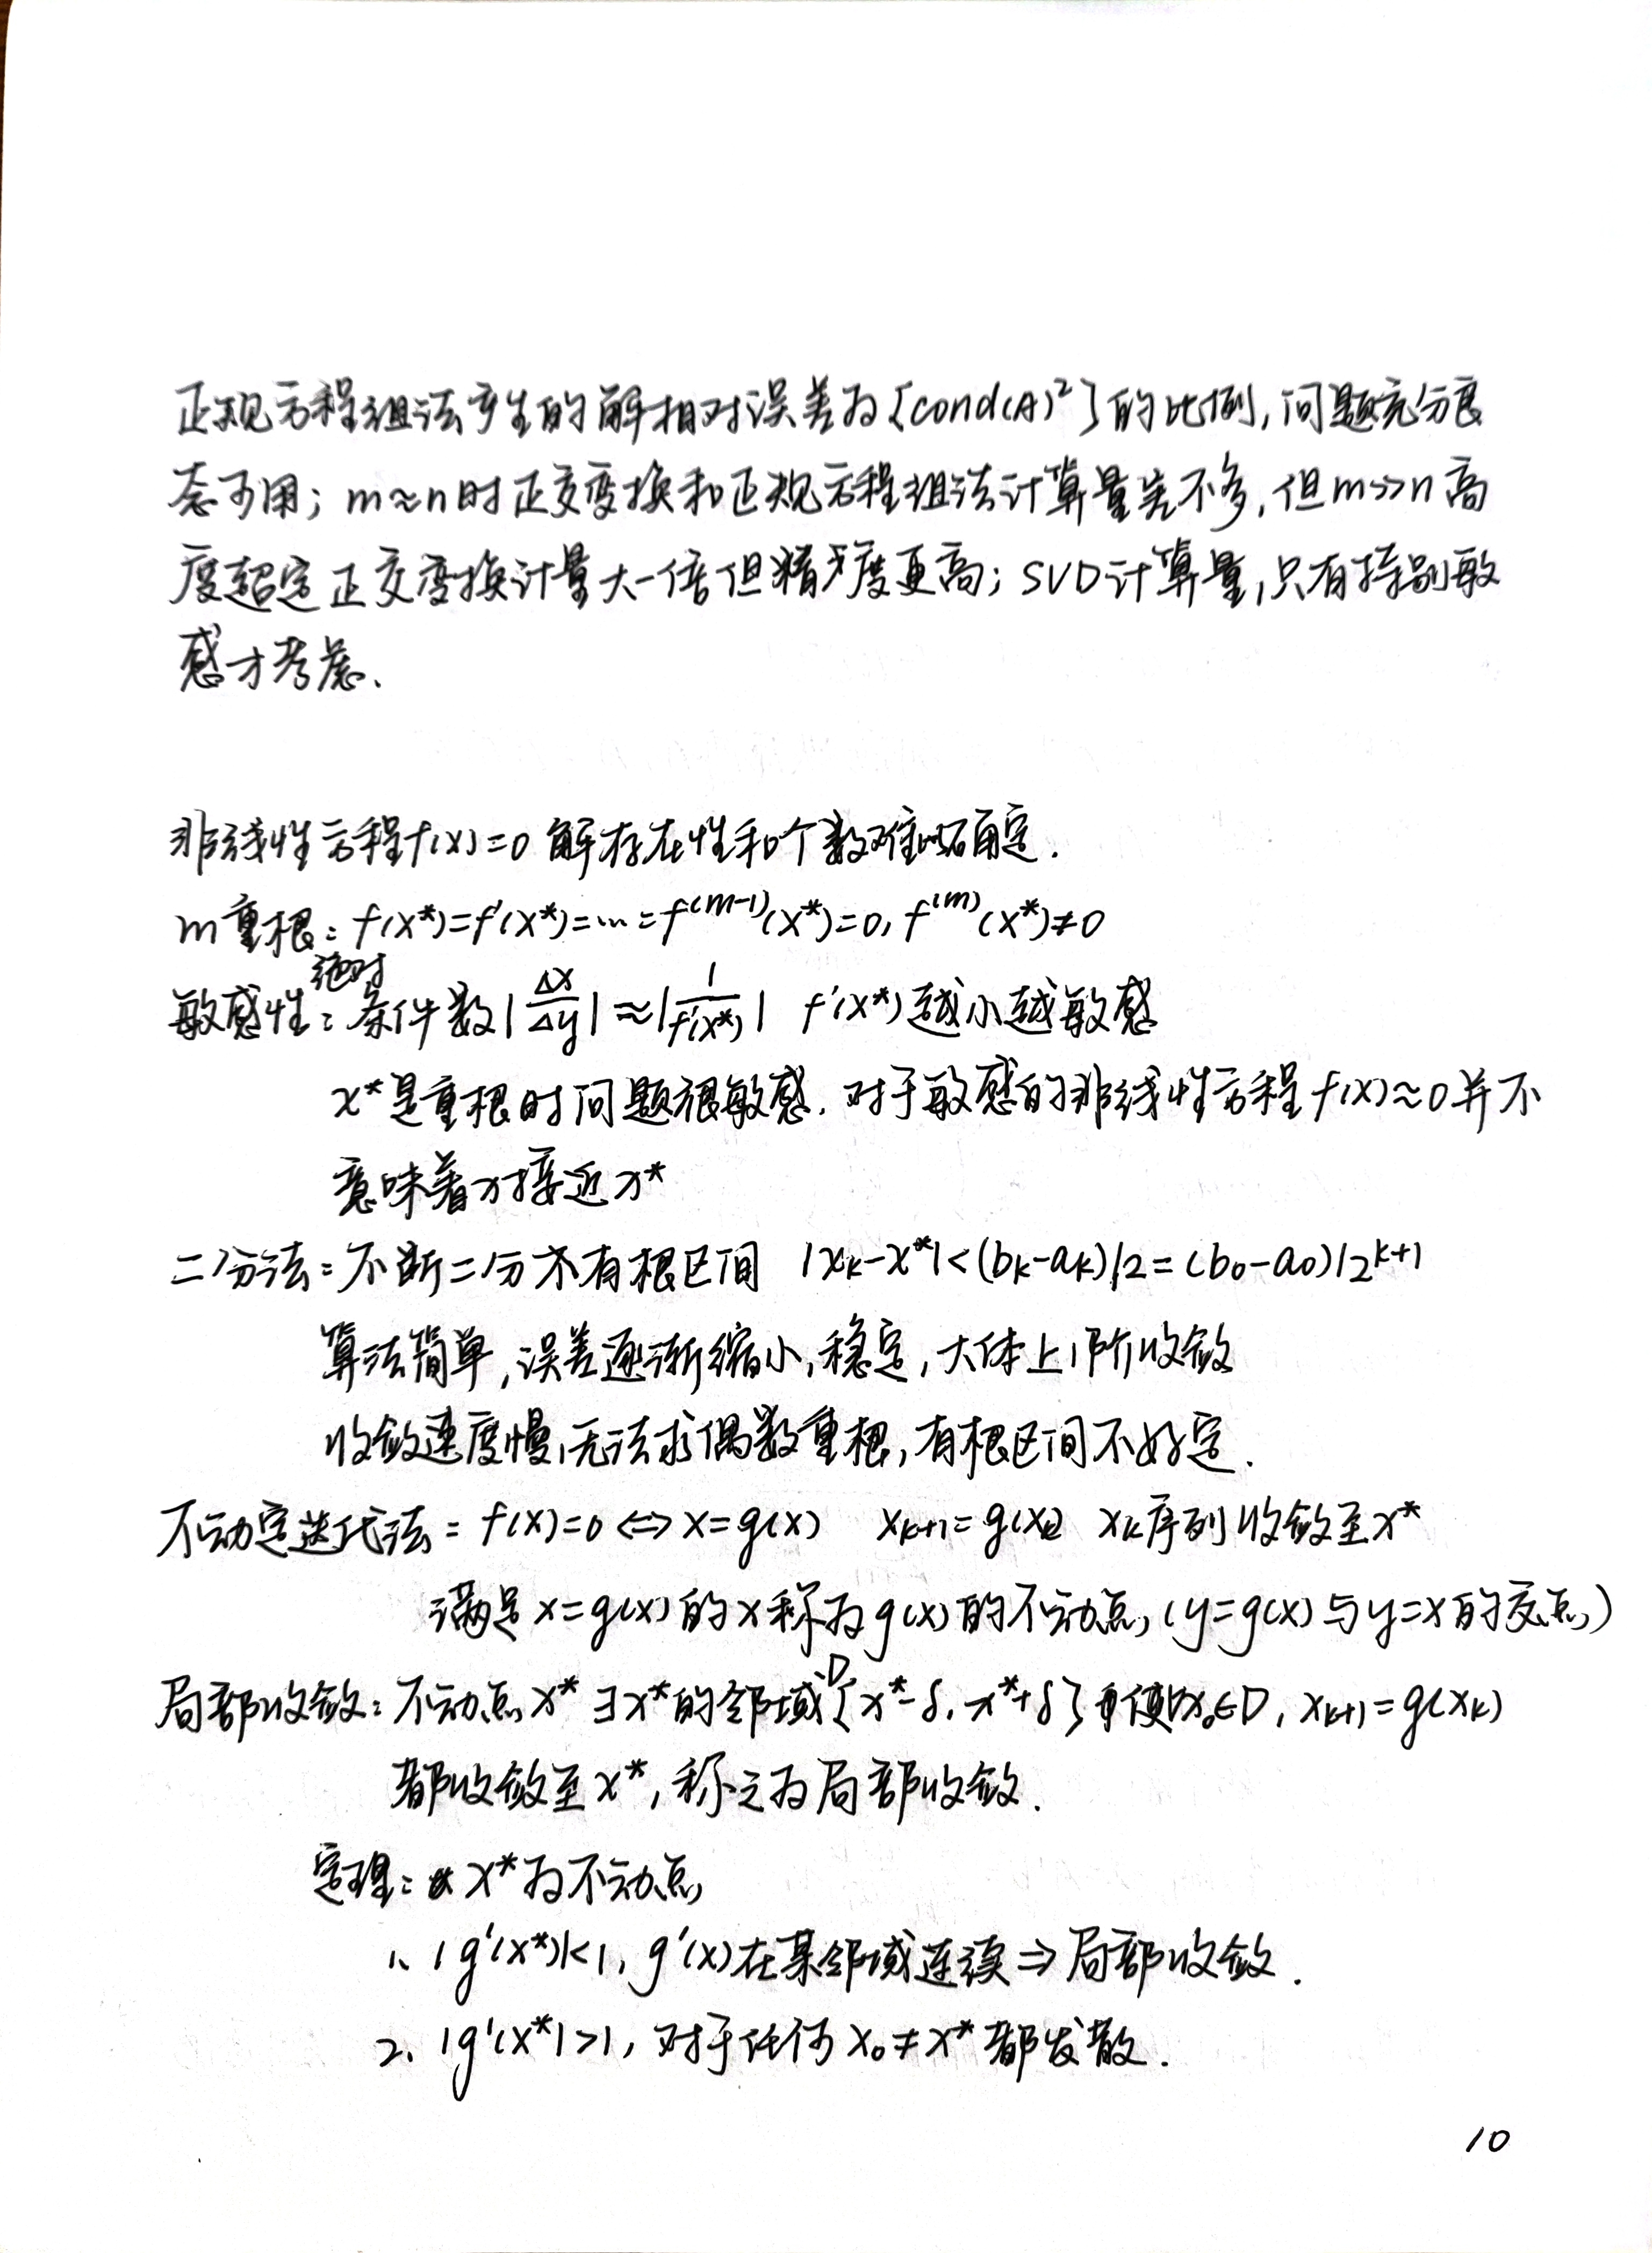 正规方程组法产生的解相对误差为[cond(A)²]的比例,问题充分良
态可用; m≈n时正交变换和正规方程组法计算量差不多,但m>>n高
度超定正交变换计量大一倍但精度更高; SVD计算量,只有特别敏
感才考虑、
非线性方程f(x)=0 解存在性和个数难以确定.
m重根: f(x*)=f'(x*)=…=f^(m-1)(x*)=0, f^(m)(x*)≠0
敏感性: 绝对条件数|Δx/Δy|≈|1/f'(x*)| f'(x*)越小越敏感
x*是重根时问题很敏感. 对于敏感的非线性方程f(x)≈0并不
意味着x接近x*
二分法: 不断二分有根区间 |xₖ-x*|<(bₖ-aₖ)/2=(b₀-a₀)/2^k+1
算法简单,误差逐渐缩小,稳定,大体上1阶收敛
收敛速度慢,无法求偶数重根,有根区间不好定.
不动定迭代法: f(x)=0⇔x=g(x) xₖ₊₁=g(xₖ) xₖ序列收敛至x*
满足x=g(x)的x称为g(x)的不动点(y=g(x)与y=x的交点)
局部收敛: 不动点x* ∃x*的邻域D[x*-δ, x*+δ] 使∀x₀∈D, xₖ₊₁=g(xₖ)
都收敛至x*,称之为局部收敛.
定理: x*为不动点
1、|g'(x*)|<1, g'(x)在某邻域连续⇒局部收敛.
2、|g'(x*|>1, 对于任何x₀≠x*都发散.
10